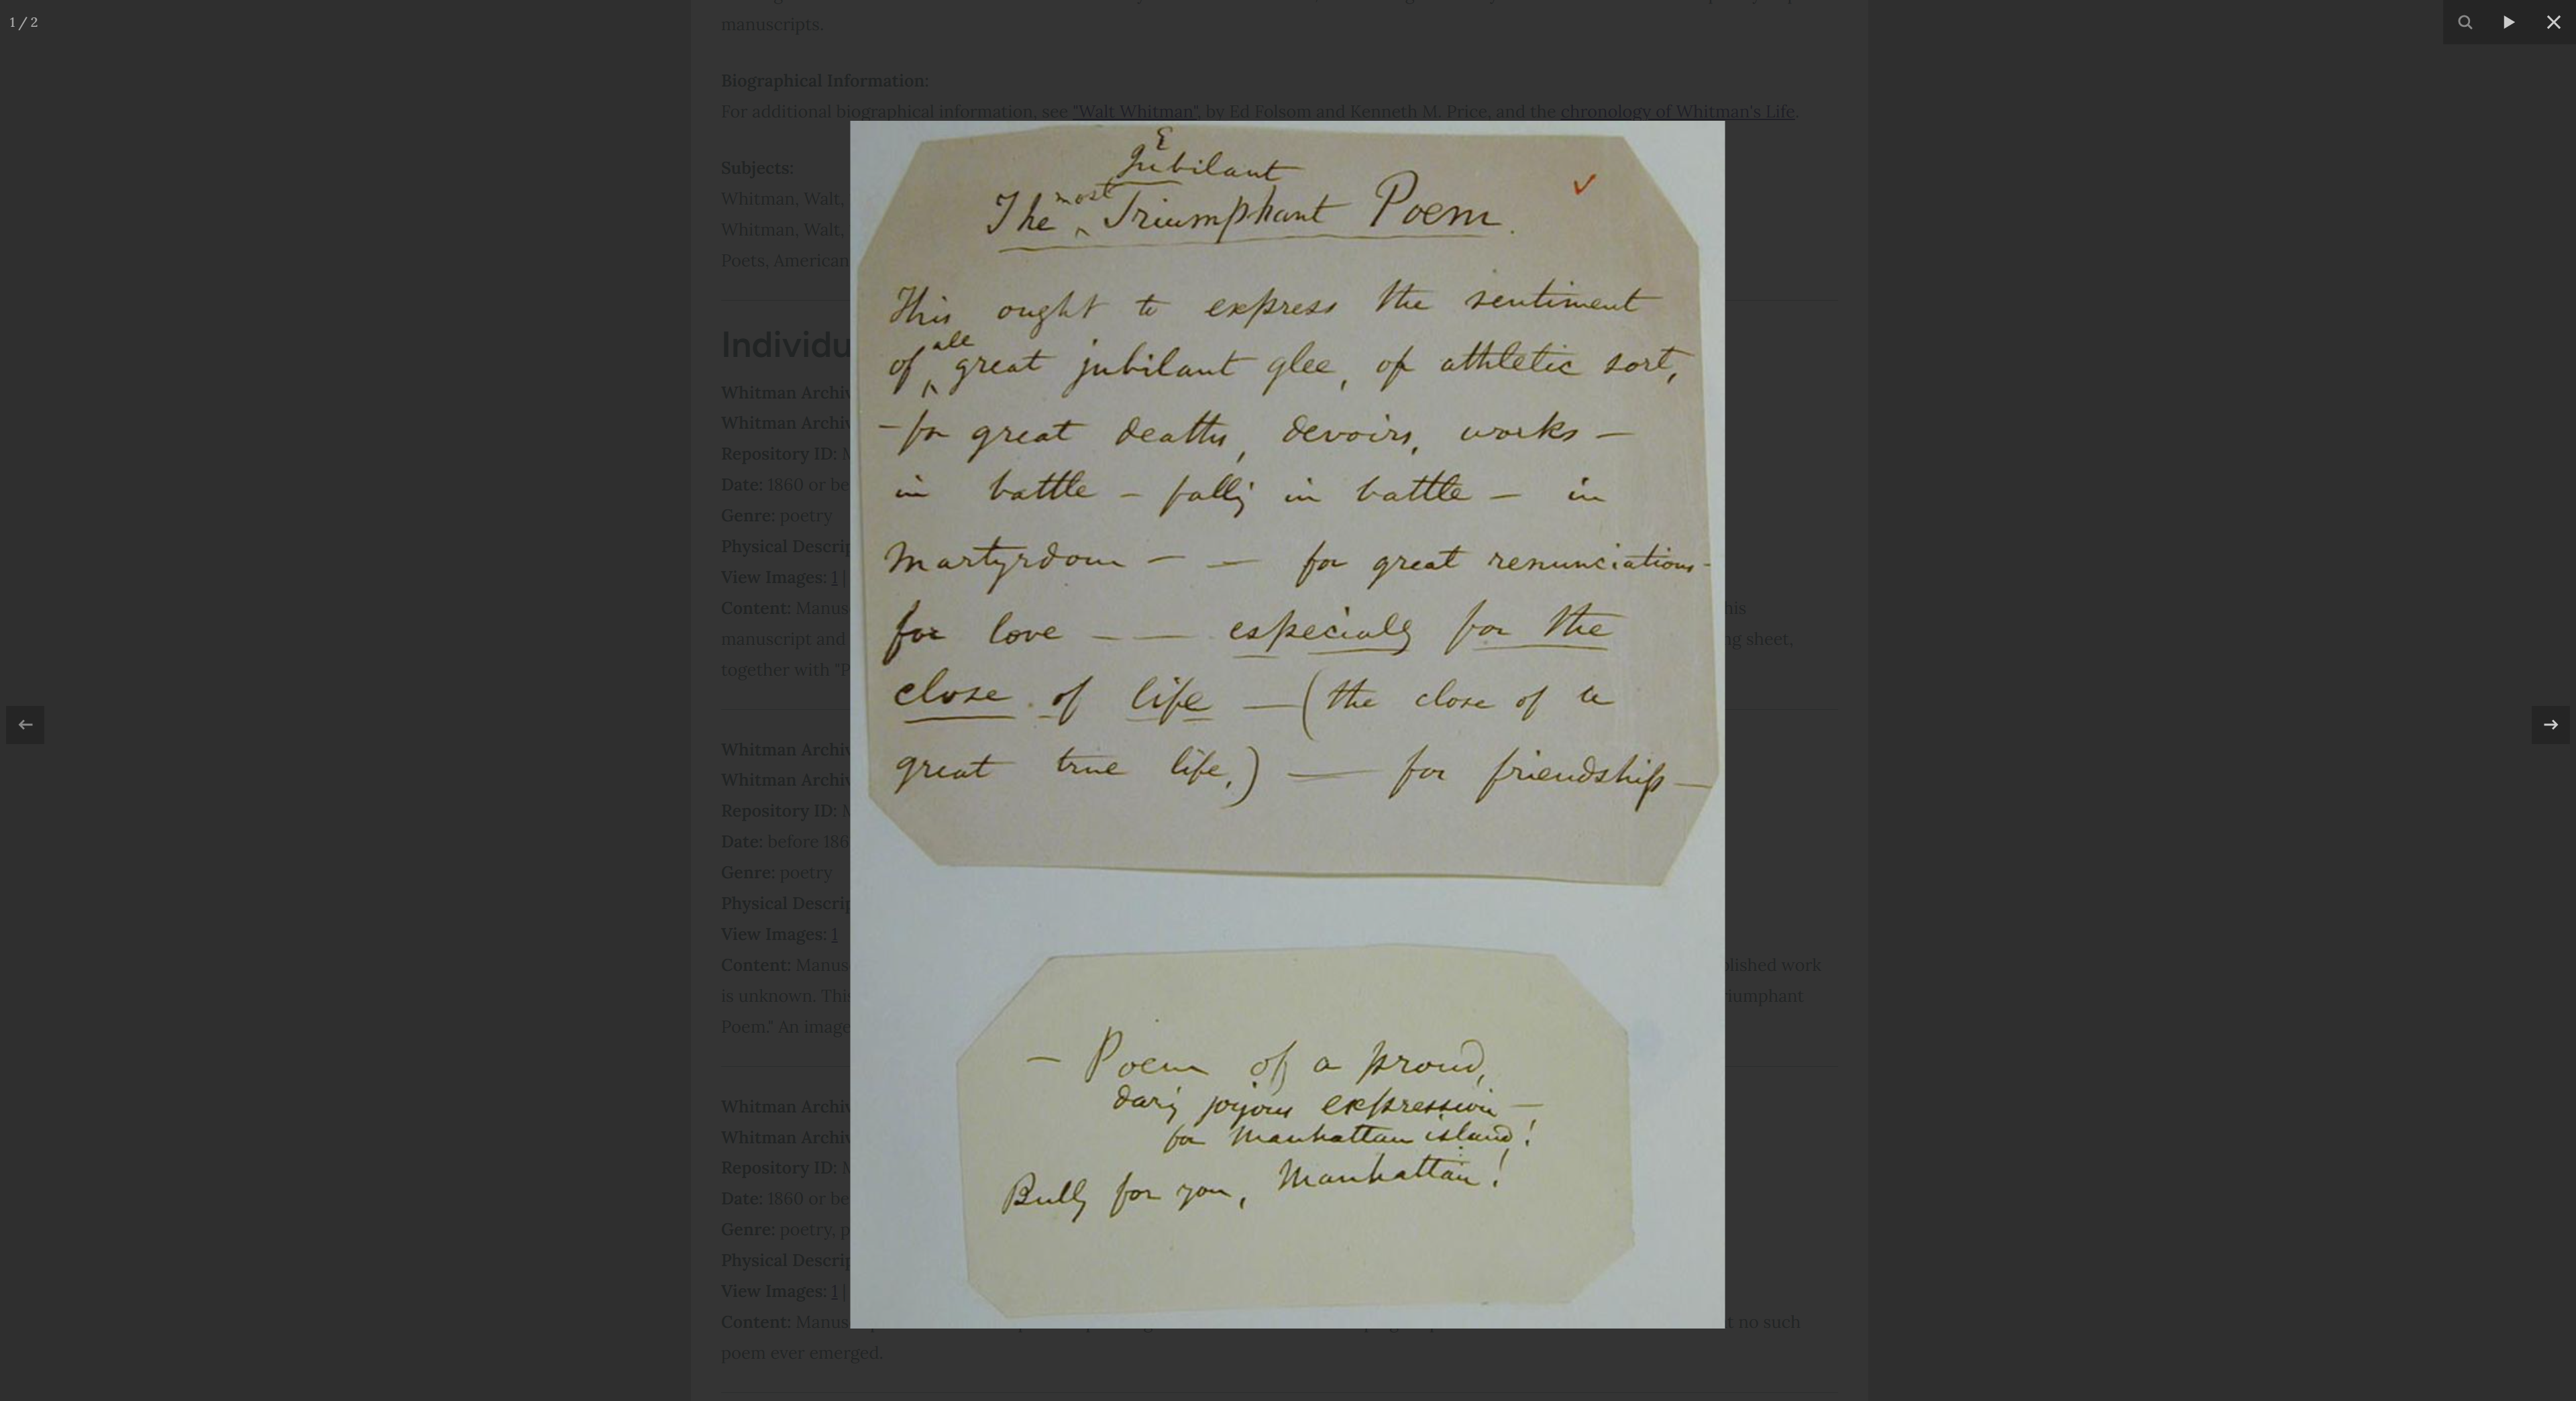 1 / 2
manuscripts.
Biographical Information:
For additional biographical information, see "Walt Whitman", by Ed Folsom and Kenneth M. Price, and the chronology of Whitman's Life.
Subjects:
Whitman, Walt,
Whitman, Walt,
Poets, American
Individu
Whitman Archiv
Whitman Archiv
Repository ID: M
Date: 1860 or be
Genre: poetry
Physical Descrip
View Images: 1 |
Content: Manus his
manuscript and g sheet,
together with "P
Whitman Archiv
Whitman Archiv
Repository ID: M
Date: before 186
Genre: poetry
Physical Descrip
View Images: 1
Content: Manus blished work
is unknown. This riumphant
Poem." An image
Whitman Archiv
Whitman Archiv
Repository ID: M
Date: 1860 or be
Genre: poetry, p
Physical Descrip
View Images: 1 |
Content: Manus t no such
poem ever emerged.
&
Jubilant
The most Triumphant Poem.
This ought to express the sentiment
of all great jubilant glee, of athletic sort,
- for great deaths, devoirs, works —
in battle — falling in battle — in
martyrdom — — for great renunciations -
for love — — especially for the
close of life — (the close of a
great true life,) — for friendship —
— Poem of a proud,
daring joyous expression —
for Manhattan island!
Bully for you, Manhattan!